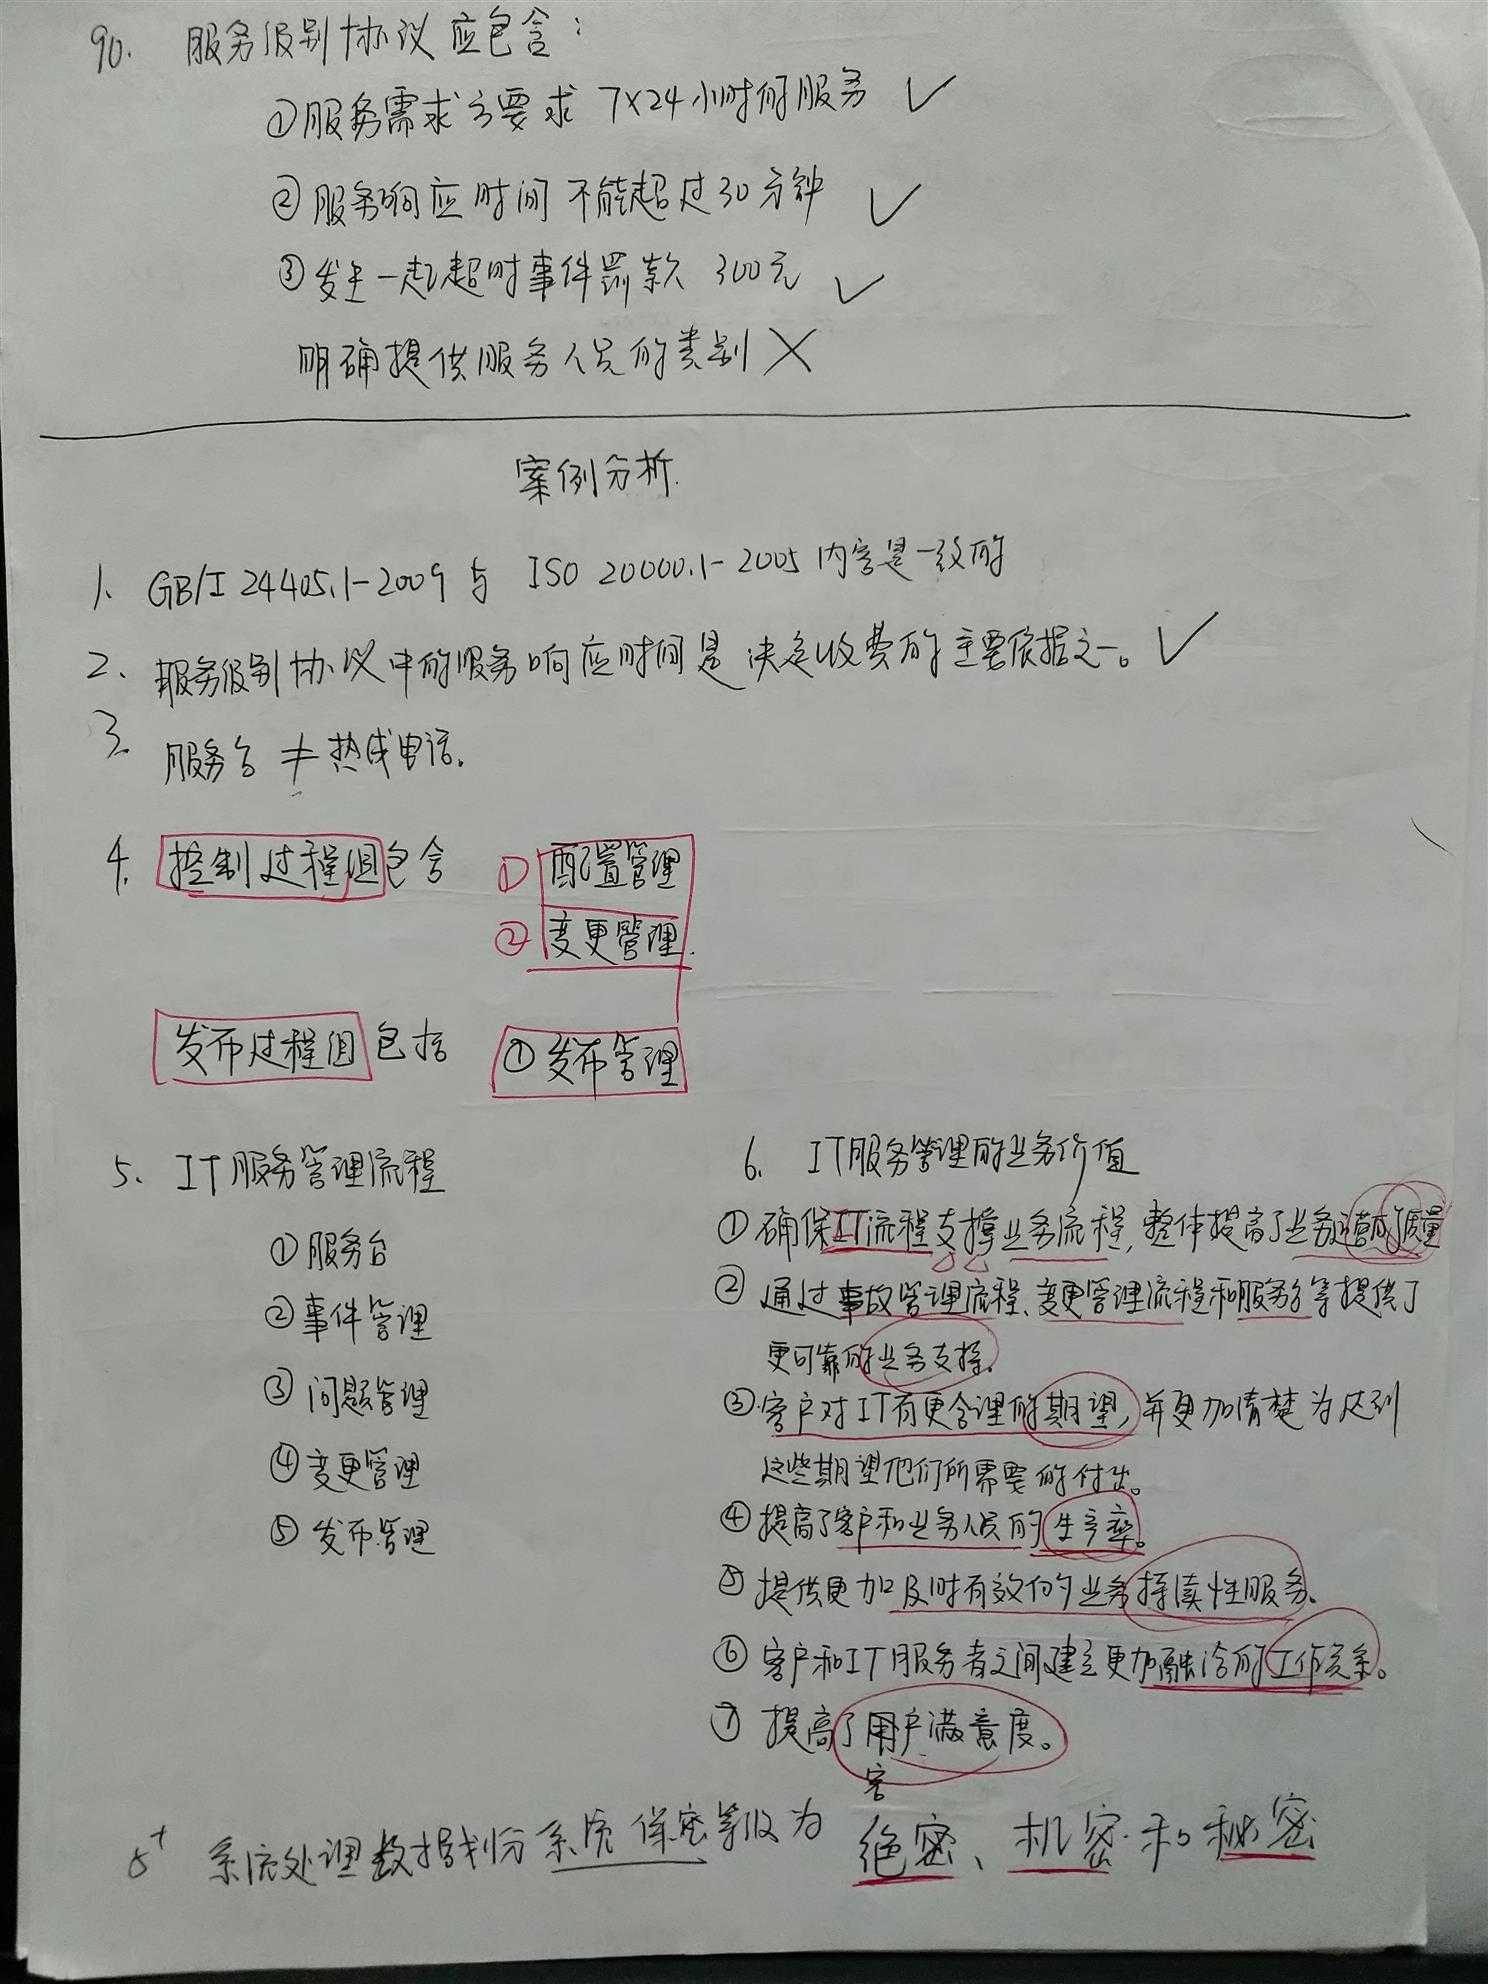 90. 服务级别协议应包含：
①服务需求方要求 7X24小时的服务 ✓
②服务响应时间不能超过30分钟 ✓
③发生一起超时事件罚款 300元 ✓
明确提供服务人员的类别 ×
案例分析.
1. GB/T 24405.1-2009 与 ISO 20000.1-2005 内容是一致的
2. 服务级别协议中的服务响应时间是决定收费的主要依据之一。✓
3. 服务台 ≠ 热线电话.
4. 控制过程组包含 ① 配置管理
② 变更管理.
发布过程组包括 ①发布管理
5. IT服务管理流程
①服务台
②事件管理
③问题管理
④变更管理
⑤发布管理
6. IT服务管理的业务价值
①确保IT流程支撑业务流程,整体提高了业务运营的质量
②通过事故管理流程、变更管理流程和服务台等提供了
更可靠的业务支持.
③客户对IT有更合理的期望,并更加清楚为达到
这些期望他们所需要的付出。
④提高了客户和业务人员的生产率。
⑤提供更加及时有效的业务持续性服务.
⑥客户和IT服务者之间建立更加融洽的工作关系。
⑦提高了用户满意度。
客
5+ 系统处理数据划分系统保密等级为 绝密、机密和秘密